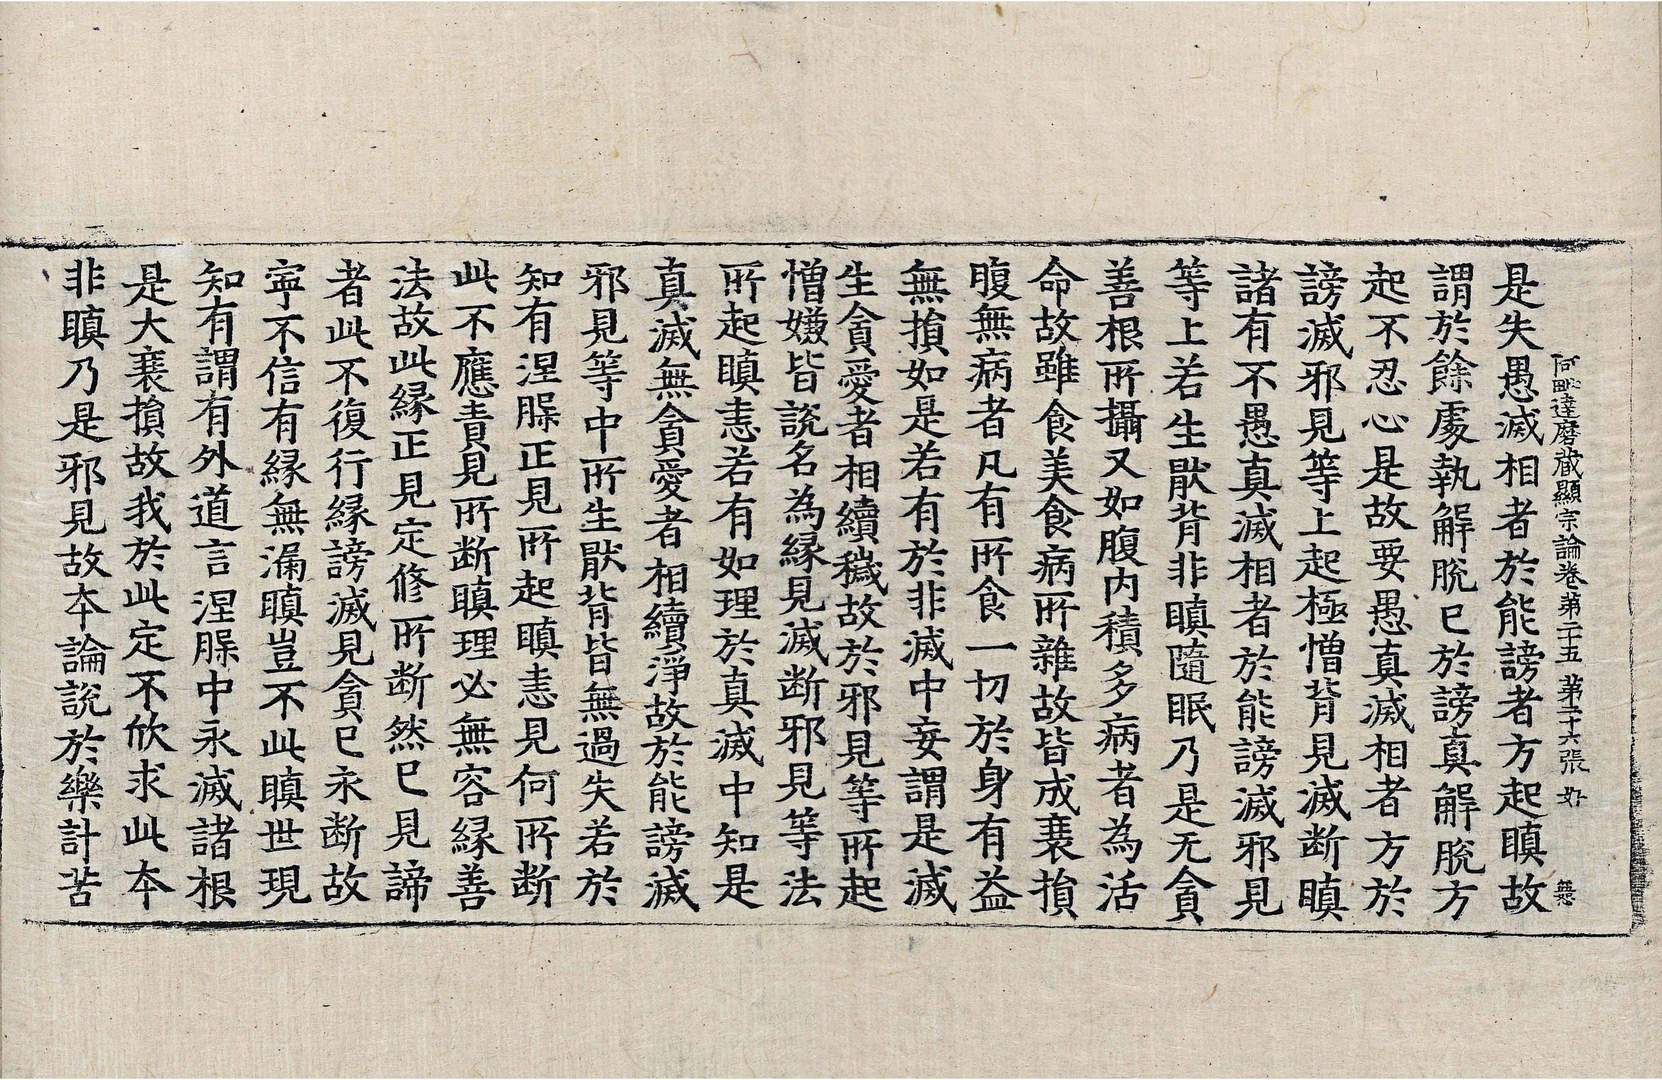 阿毗達磨藏顯宗論卷第二十五 第二十六張 如
是失愚滅相者於能謗者方起瞋故
謂於餘處執解脫已於謗真解脫方
起不忍心是故要愚真滅相者方於
謗滅邪見等上起極憎背見滅斷瞋
諸有不愚真滅相者於能謗滅邪見
等上若生猒背非瞋隨眠乃是无貪
善根所攝又如腹內積多病者為活
命故雖食美食病所雜故皆成衰損
腹無病者凡有所食一切於身有益
無損如是若有於非滅中妄謂是滅
生貪愛者相續穢故於邪見等所起
憎嫌皆說名為緣見滅斷邪見等法
所起瞋恚若有如理於真滅中知是
真滅無貪愛者相續淨故於能謗滅
邪見等中所生猒背皆無過失若於
知有涅槃正見所起瞋恚見何所斷
此不應責見所斷瞋理必無容緣善
法故此緣正見定修所斷然已見諦
者此不復行緣謗滅見貪已永斷故
寧不信有緣無漏瞋豈不此瞋世現
知有謂有外道言涅槃中永滅諸根
是大衰損故我於此定不欣求此本
非瞋乃是邪見故本論說於樂計苦